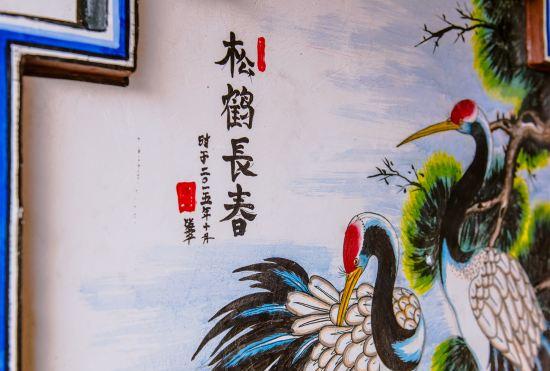 松鶴長春
时于二〇一五年十月